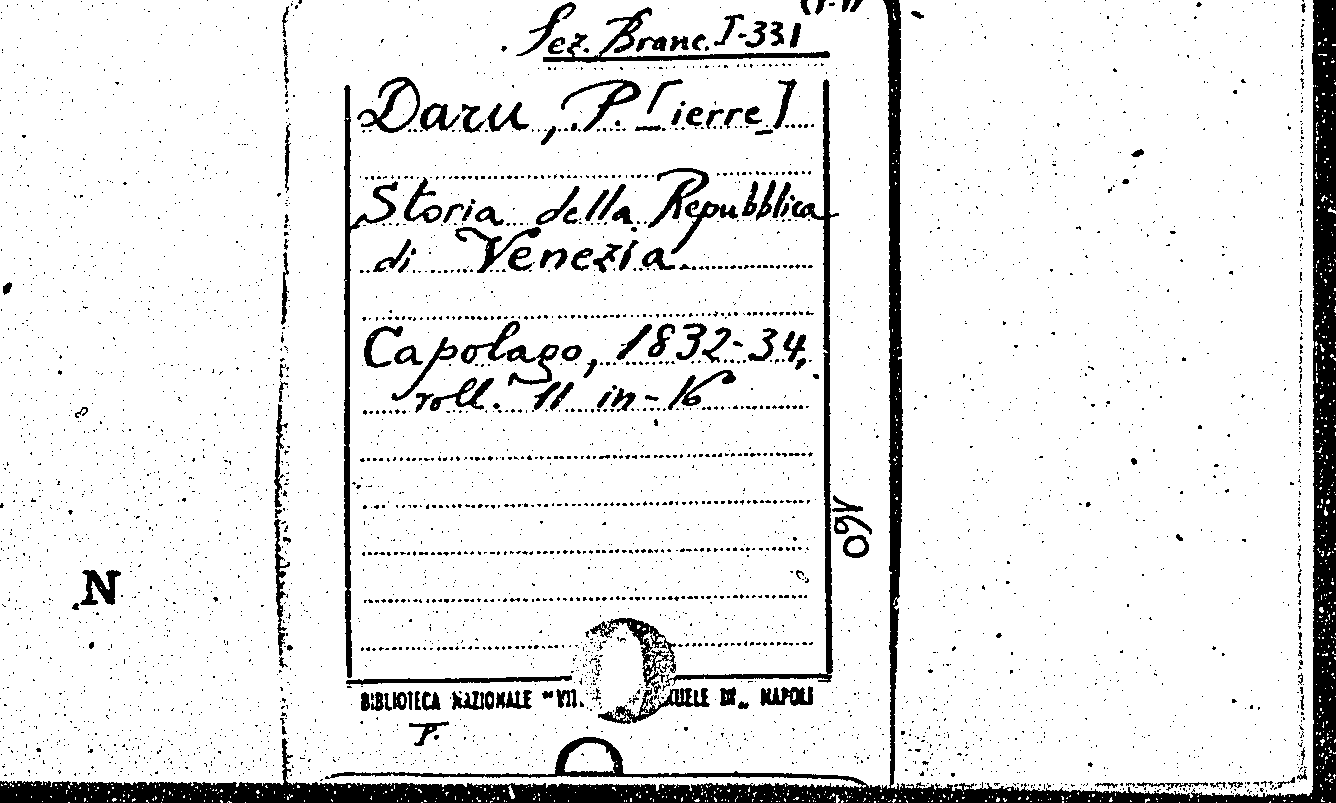 Sez. Branc. I-331
Daru, P. [ierre]
Storia della Repubblica
di Venezia.
Capolago, 1832-34,
voll. 11 in-16
N
BIBLIOTECA NAZIONALE "VITT. EMANUELE III" NAPOLI